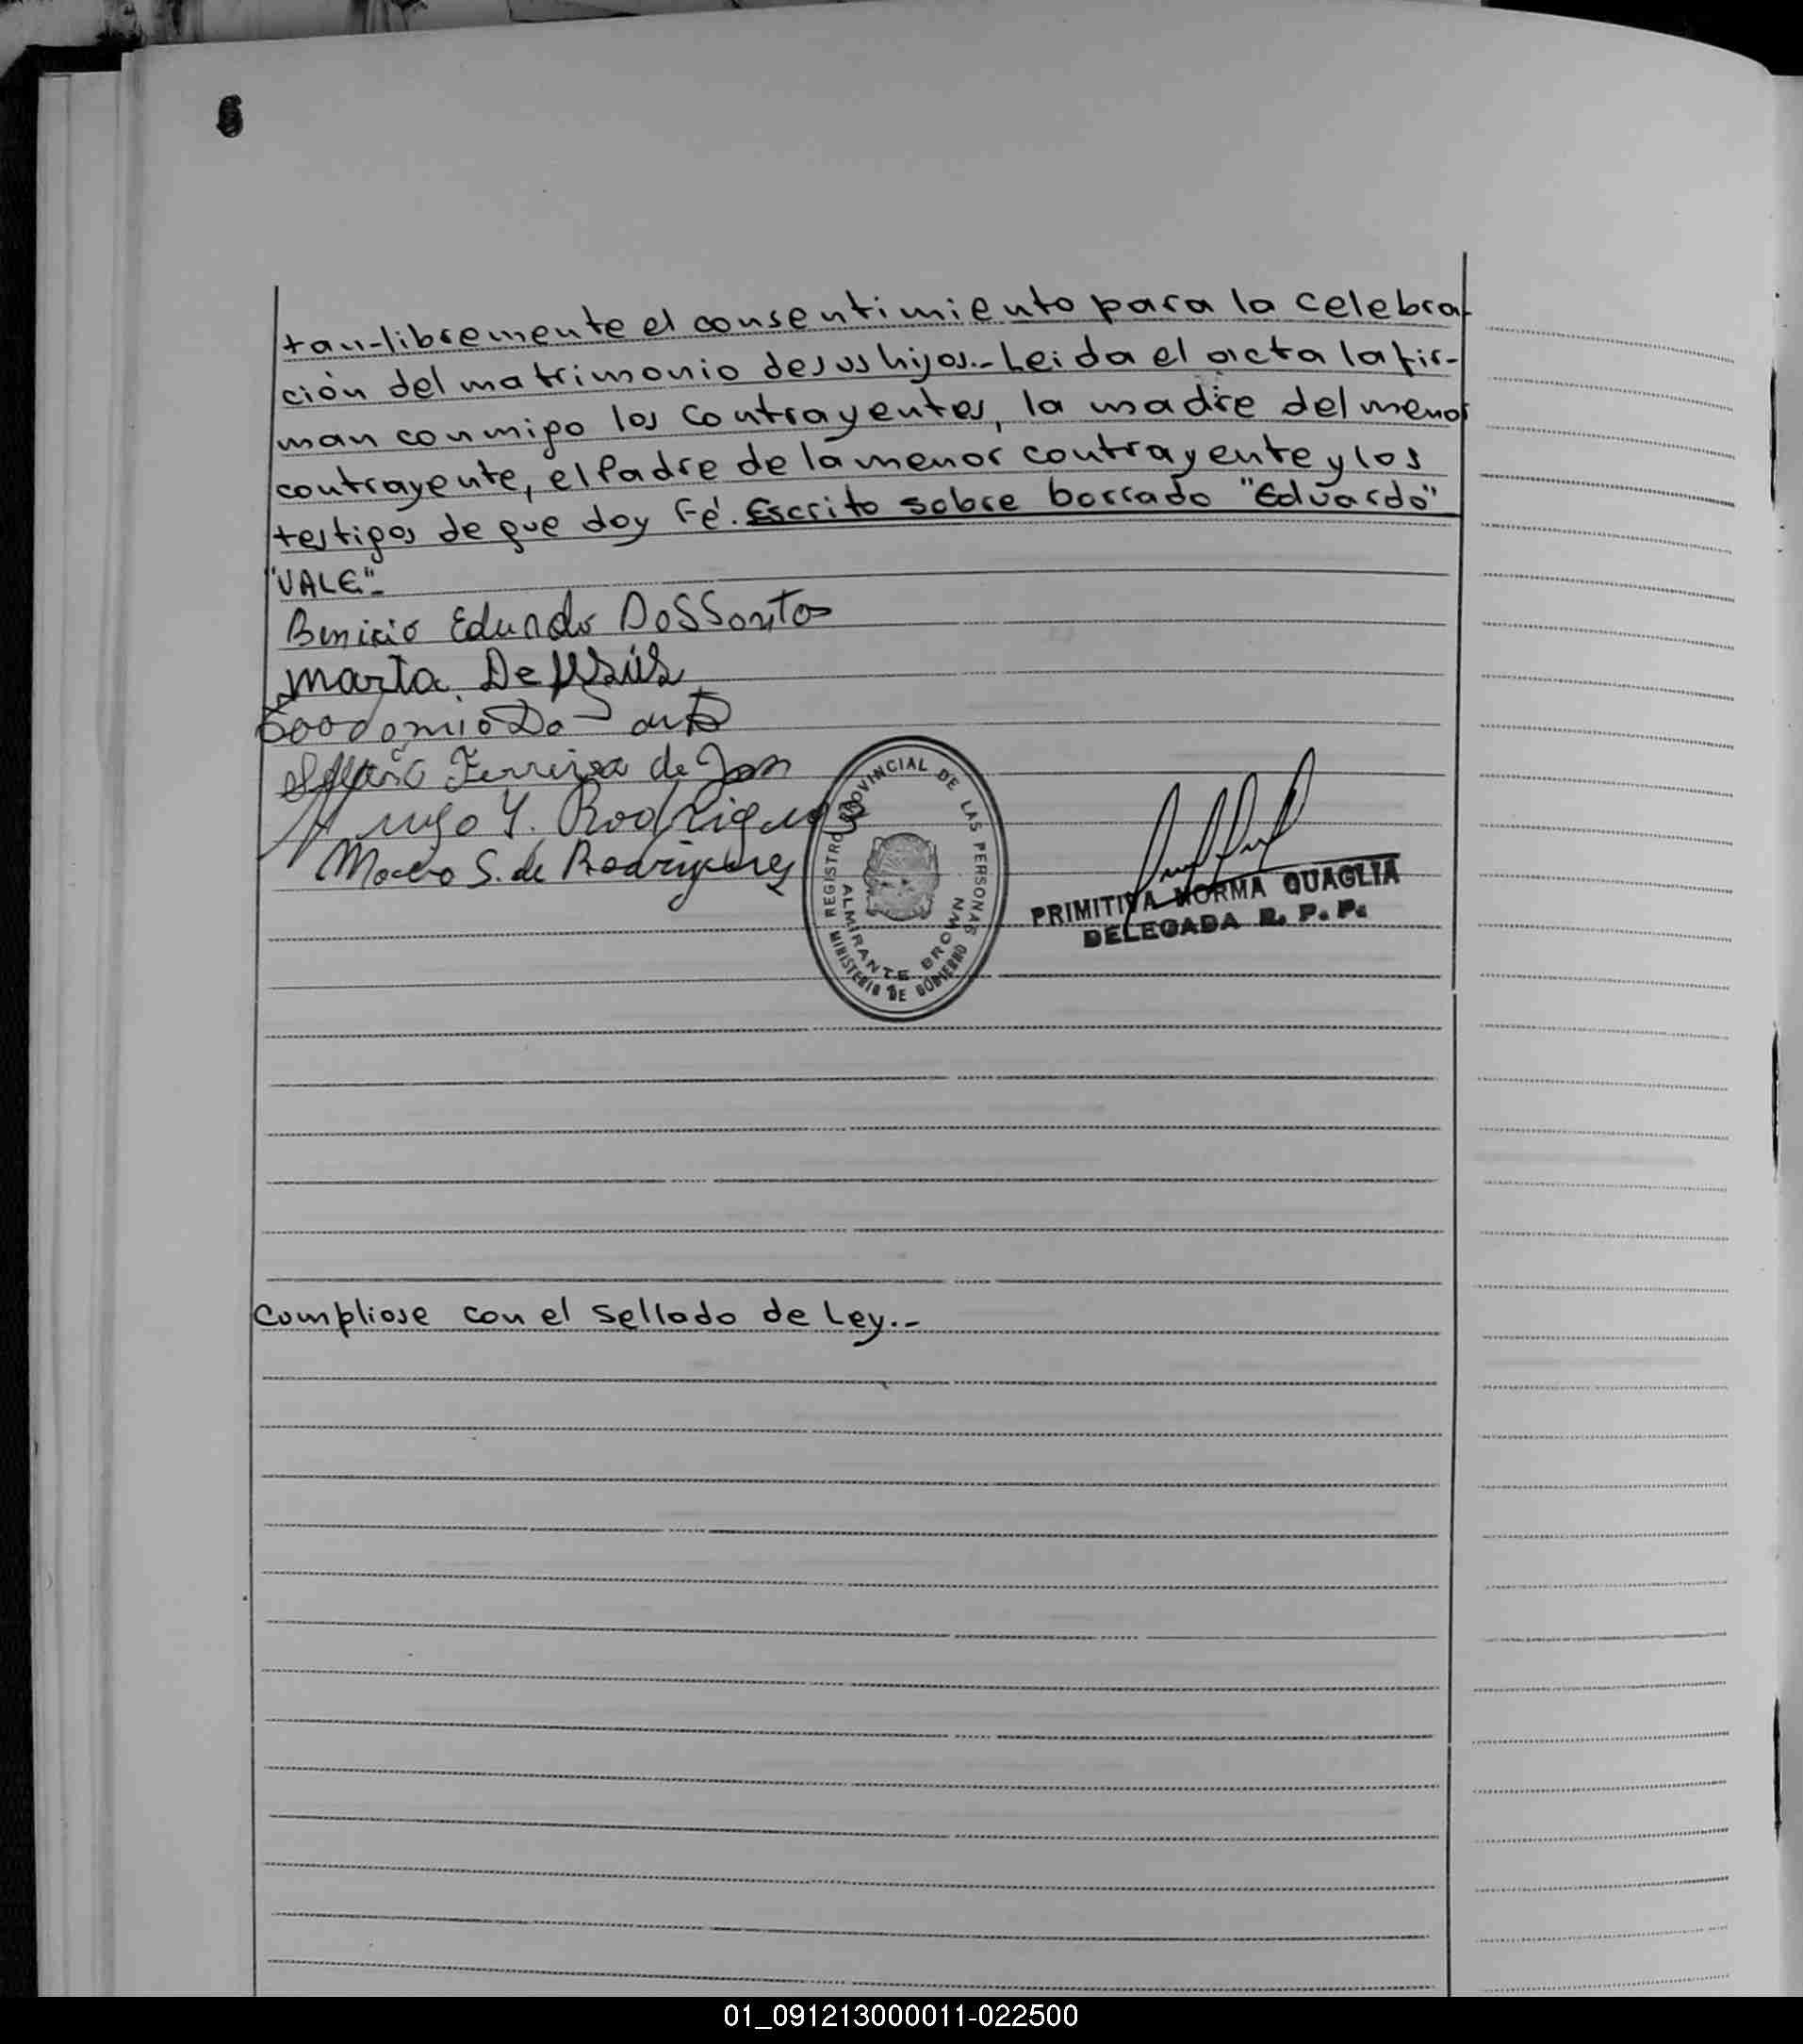 6
tan-libremente el consentimiento para la celebra-
ción del matrimonio de sus hijos.- Leida el acta la fir-
man conmigo los contrayentes, la madre del menor
contrayente, el Padre de la menor contrayente y los
testigos de que doy Fé. Escrito sobre borrado "Eduardo"
"VALE".-
Benicio Eduardo Dos Santos
Marta De Jesús
Ferreira de
Hugo Y. Rodriguez
S. de Rodriguez
REGISTRO PROVINCIAL DE LAS PERSONAS
ALMIRANTE BROWN
MINISTERIO DE GOBIERNO
PRIMITIVA NORMA QUAGLIA
DELEGADA R. P. P.
Cumpliose con el Sellado de Ley.-
01_091213000011-022500